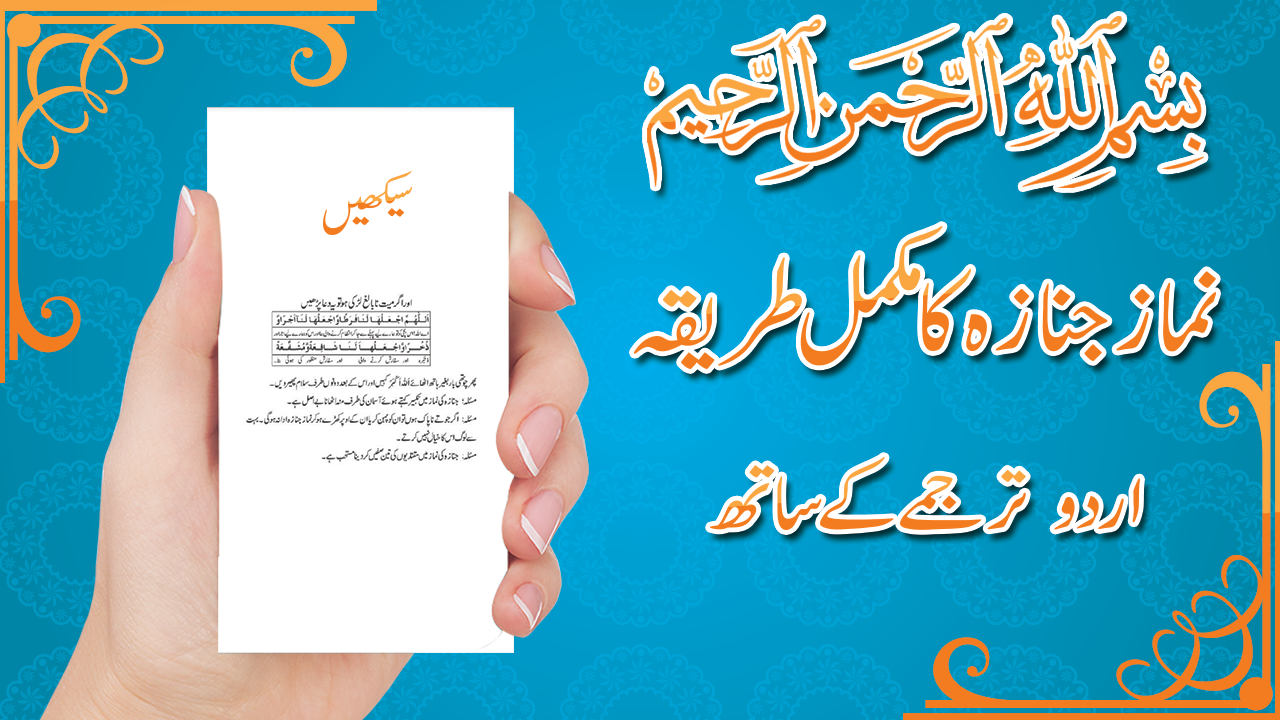 بِسْمِ اللّٰهِ الرَّحْمٰنِ الرَّحِيمِ
نماز جنازہ کا مکمل طریقہ
اردو ترجمے کے ساتھ
سیکھیں
اور اگر میت نا بالغ لڑکی ہو تو یہ دعا پڑھیں
اَللّٰهُمَّ اجْعَلْهَا لَنَا فَرَطًا وَّاجْعَلْهَا لَنَا اَجْرًا وَّ
ذُخْرًا وَّاجْعَلْهَا لَنَا شَافِعَةً وَّمُشَفَّعَةً
ذخیرہ اور سفارش کرنے والی اور سفارش منظور کی ہوئی بنا۔
پھر چوتھی بار بغیر ہاتھ اٹھائے اَللّٰهُ اَكْبَرُ کہیں اور اس کے بعد دونوں طرف سلام پھیر دیں۔
مسئلہ: جنازہ کی نماز میں تکبیر کہتے ہوئے آسمان کی طرف منہ اٹھانا بے اصل ہے۔
مسئلہ: اگر جوتے ناپاک ہوں تو ان کو پہن کر یا ان کے اوپر کھڑے ہو کر نماز جنازہ ادا نہ ہوگی۔ بہت
سے لوگ اس کا خیال نہیں کرتے۔
مسئلہ: جنازہ کی نماز میں مقتدیوں کی تین صفیں کر دینا مستحب ہے۔